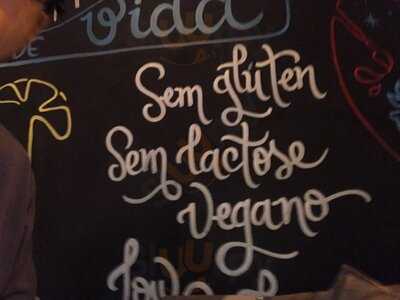 DE vida
Sem glúten
Sem lactose
Vegano